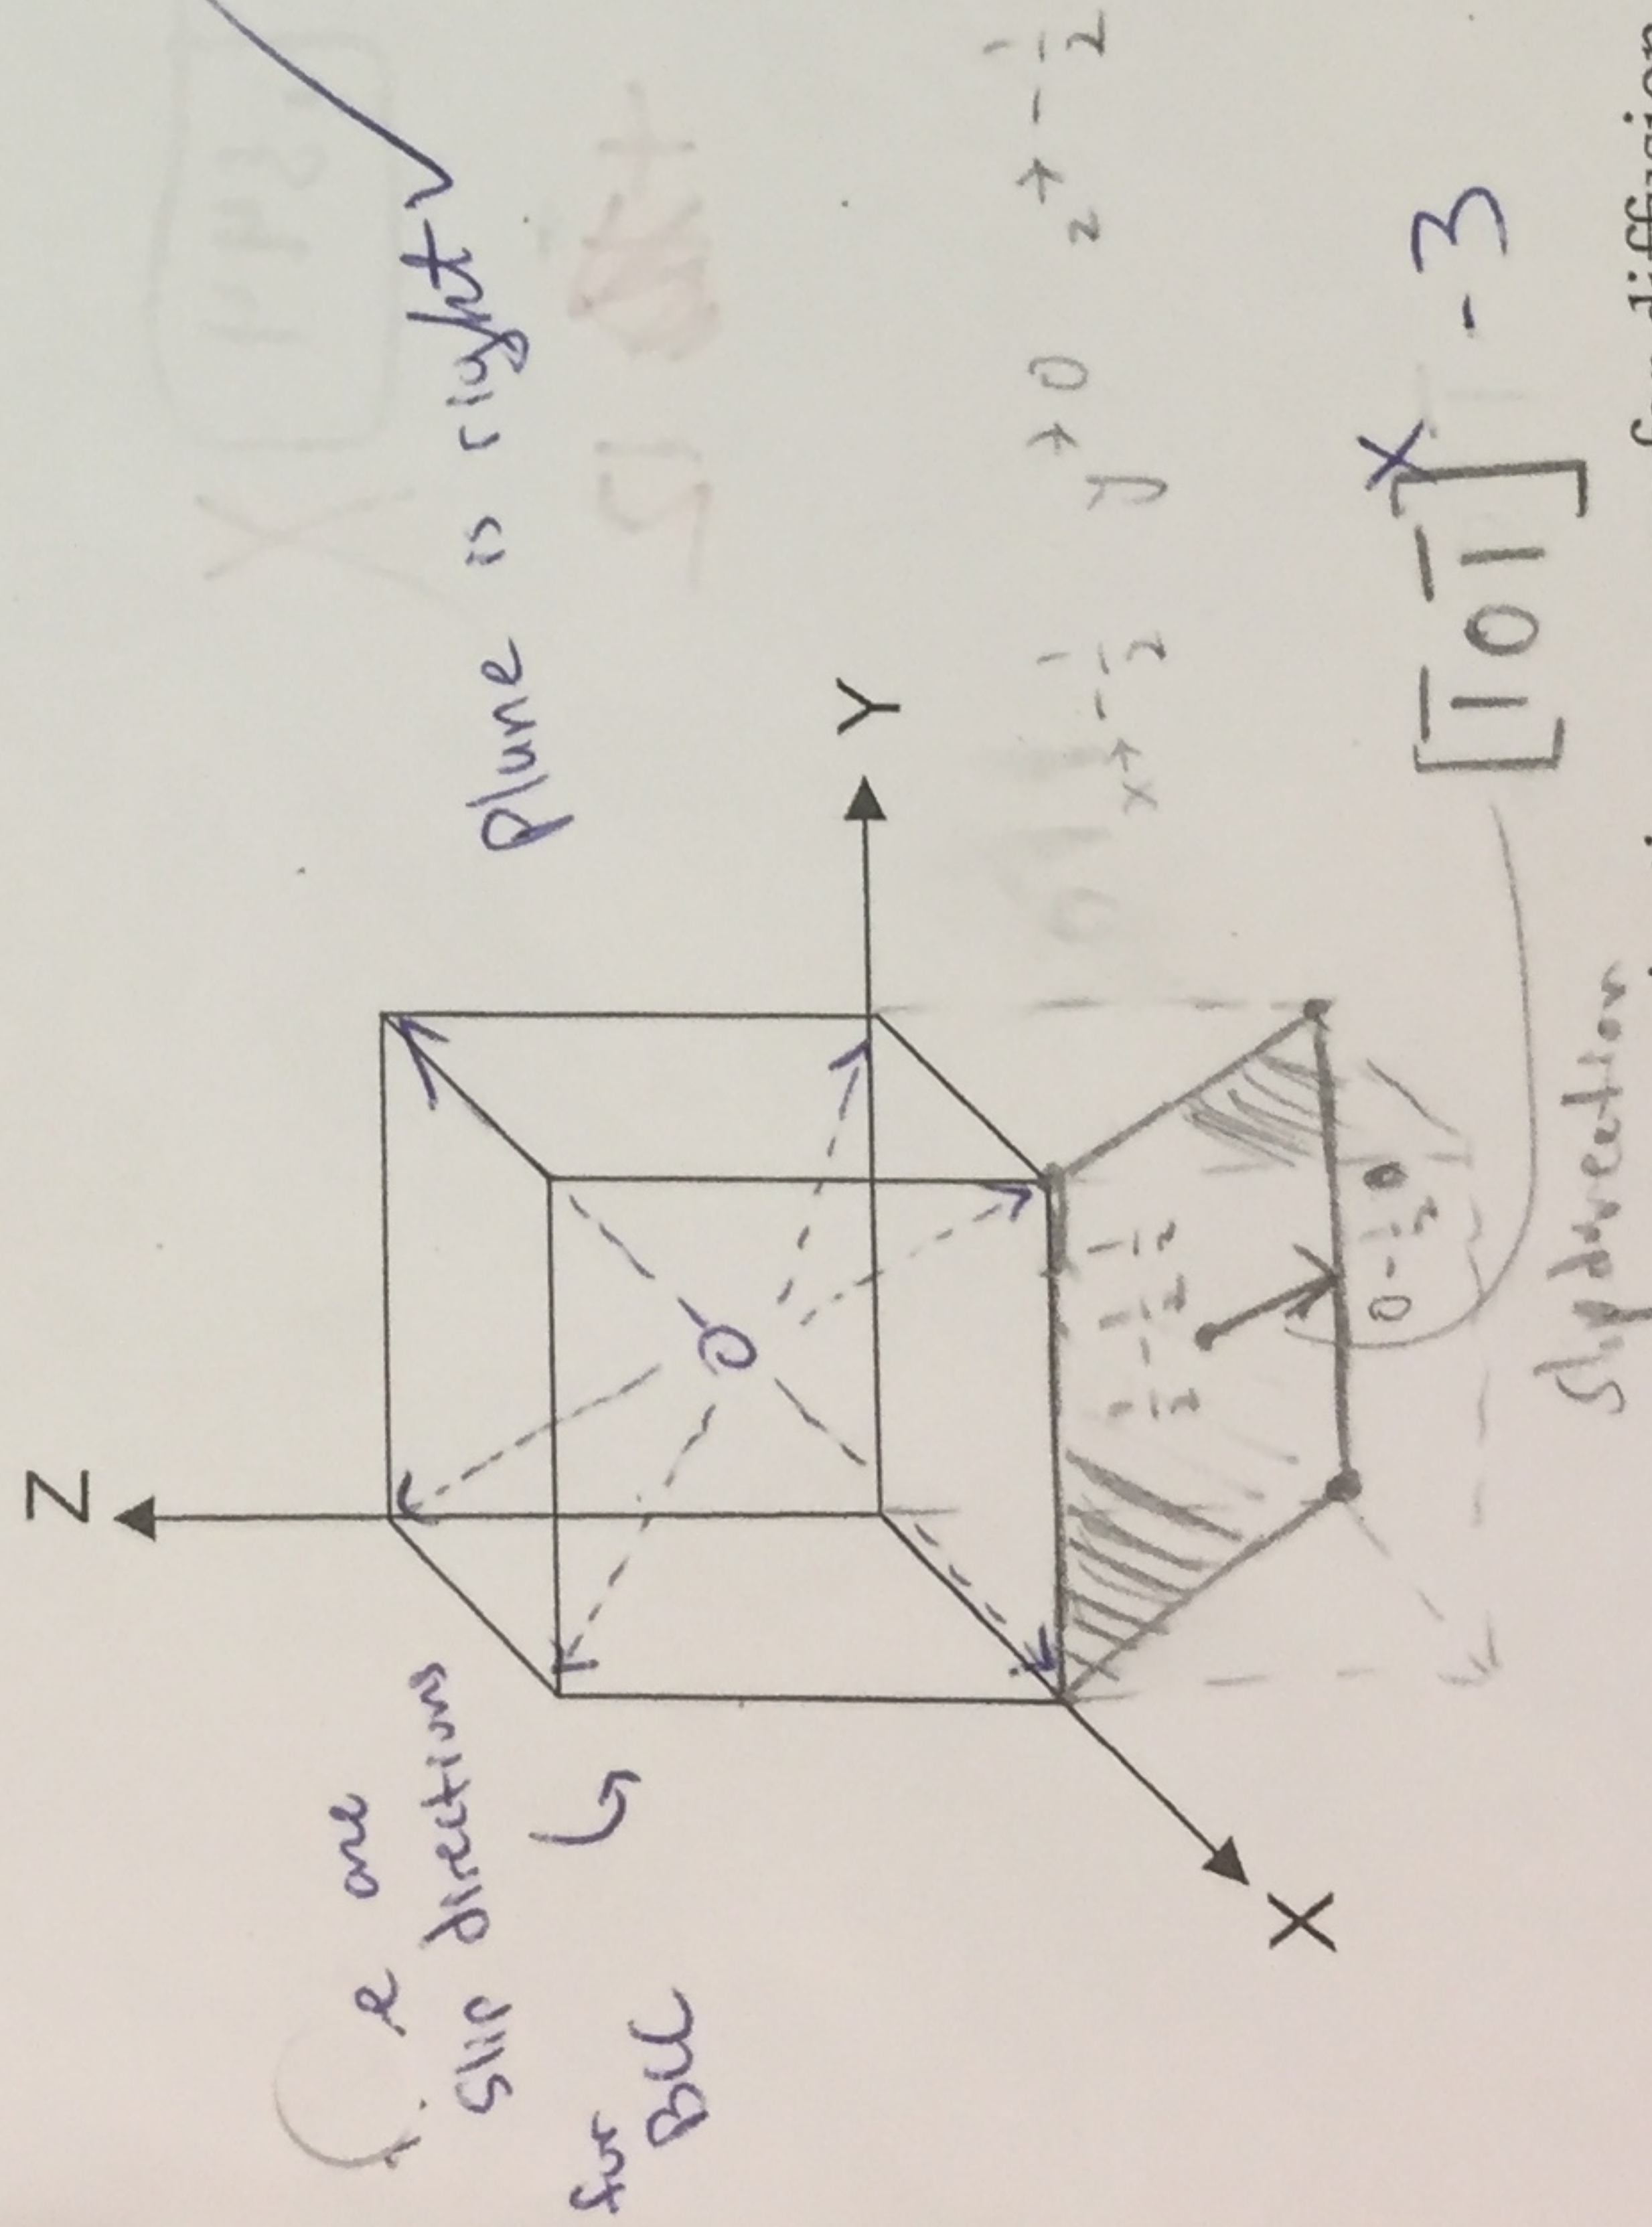 plane is right
Z
Y
X
e are
slip directions
for
BCC
x → -1/2 y → 0 z → -1/2
1/2 -1/2 1/2
0 -1/2 0
[1̅01̅] x -3
Slip direction
for diffusion